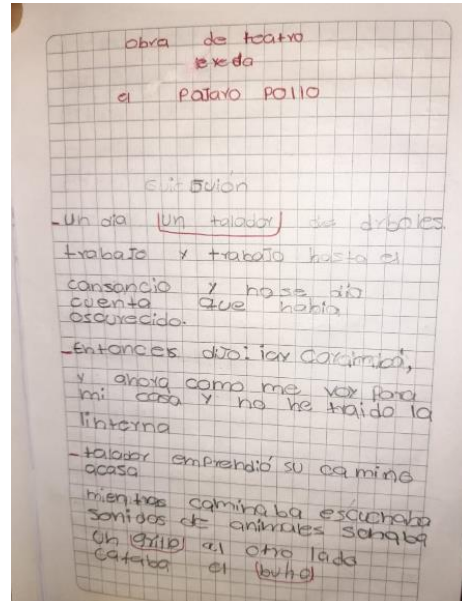 obra de teatro
exeda
el pajaro pollo
un dia un talador de arboles
trabajo y trabajo hasta el
cansancio y no se dio
cuenta que habia
oscurecido.
-Entonces dijo: ¡ay caramba,
y ahora como me voy para
mi casa y no he traido la
linterna
-talador emprendió su camino
acasa
mientras caminaba escuchaba
sonidos de animales sonaba
un grillo al otro lado
cataba el buho